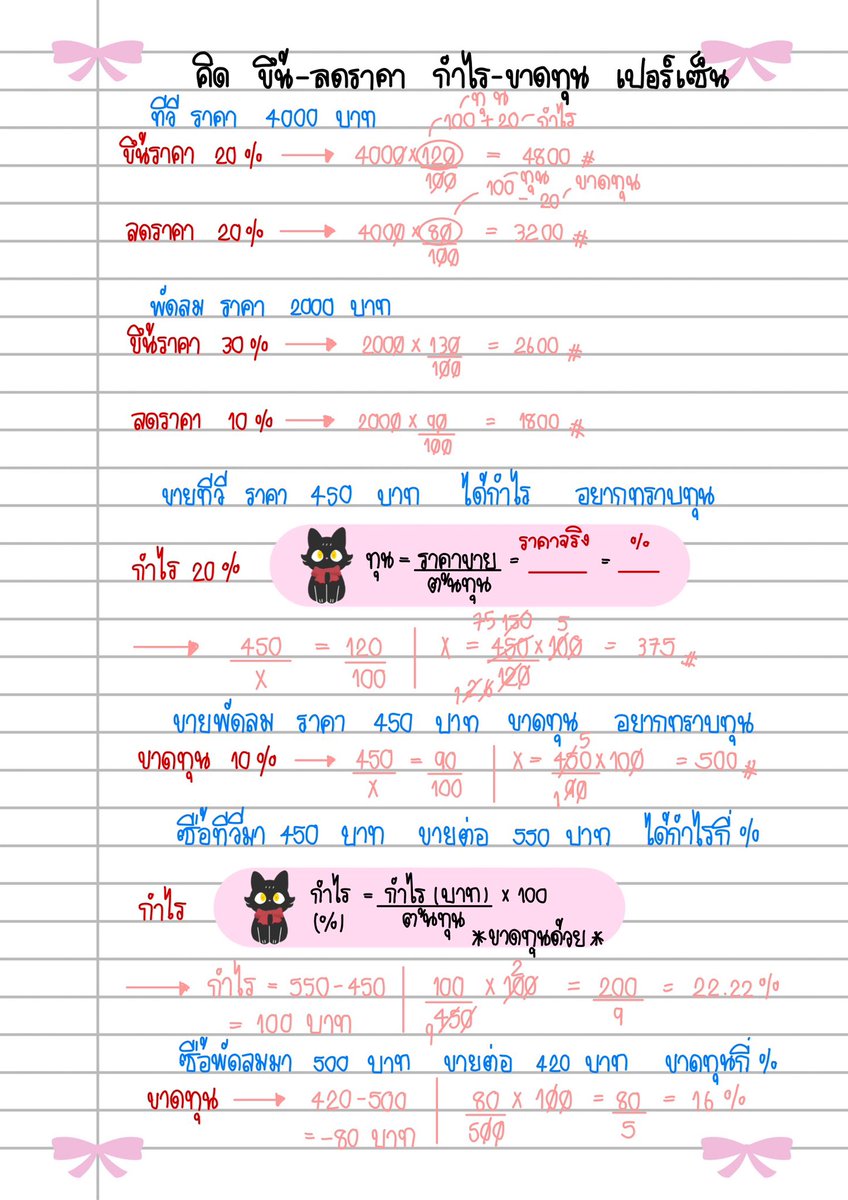 คิด ขึ้น-ลดราคา กำไร-ขาดทุน เปอร์เซ็น
ทีวี ราคา 4000 บาท
ทุน
100 + 20 กำไร
ขึ้นราคา 20% → 4000 × 120/100 = 4800 #
100 ทุน - 20 ขาดทุน
ลดราคา 20% → 4000 × 80/100 = 3200 #
พัดลม ราคา 2000 บาท
ขึ้นราคา 30% → 2000 × 130/100 = 2600 #
ลดราคา 10% → 2000 × 90/100 = 1800 #
ขายทีวี ราคา 450 บาท ได้กำไร อยากทราบทุน
กำไร 20% ทุน = ราคาขาย/ต้นทุน = ราคาจริง/ = %/
75 150 5
→ 450/X = 120/100 | X = 450 × 100/120 = 375 #
ขายพัดลม ราคา 450 บาท ขาดทุน อยากทราบทุน
5
ขาดทุน 10% → 450/X = 90/100 | X = 450 × 100/90 = 500 #
1
ซื้อทีวีมา 450 บาท ขายต่อ 550 บาท ได้กำไรกี่ %
กำไร กำไร (%) = กำไร (บาท)/ต้นทุน × 100
*ขาดทุนด้วย*
2
→ กำไร = 550-450 | 100/450 × 100 = 200/9 = 22.22%
9
= 100 บาท
ซื้อพัดลมมา 500 บาท ขายต่อ 420 บาท ขาดทุนกี่ %
ขาดทุน → 420-500 | 80/500 × 100 = 80/5 = 16%
= -80 บาท